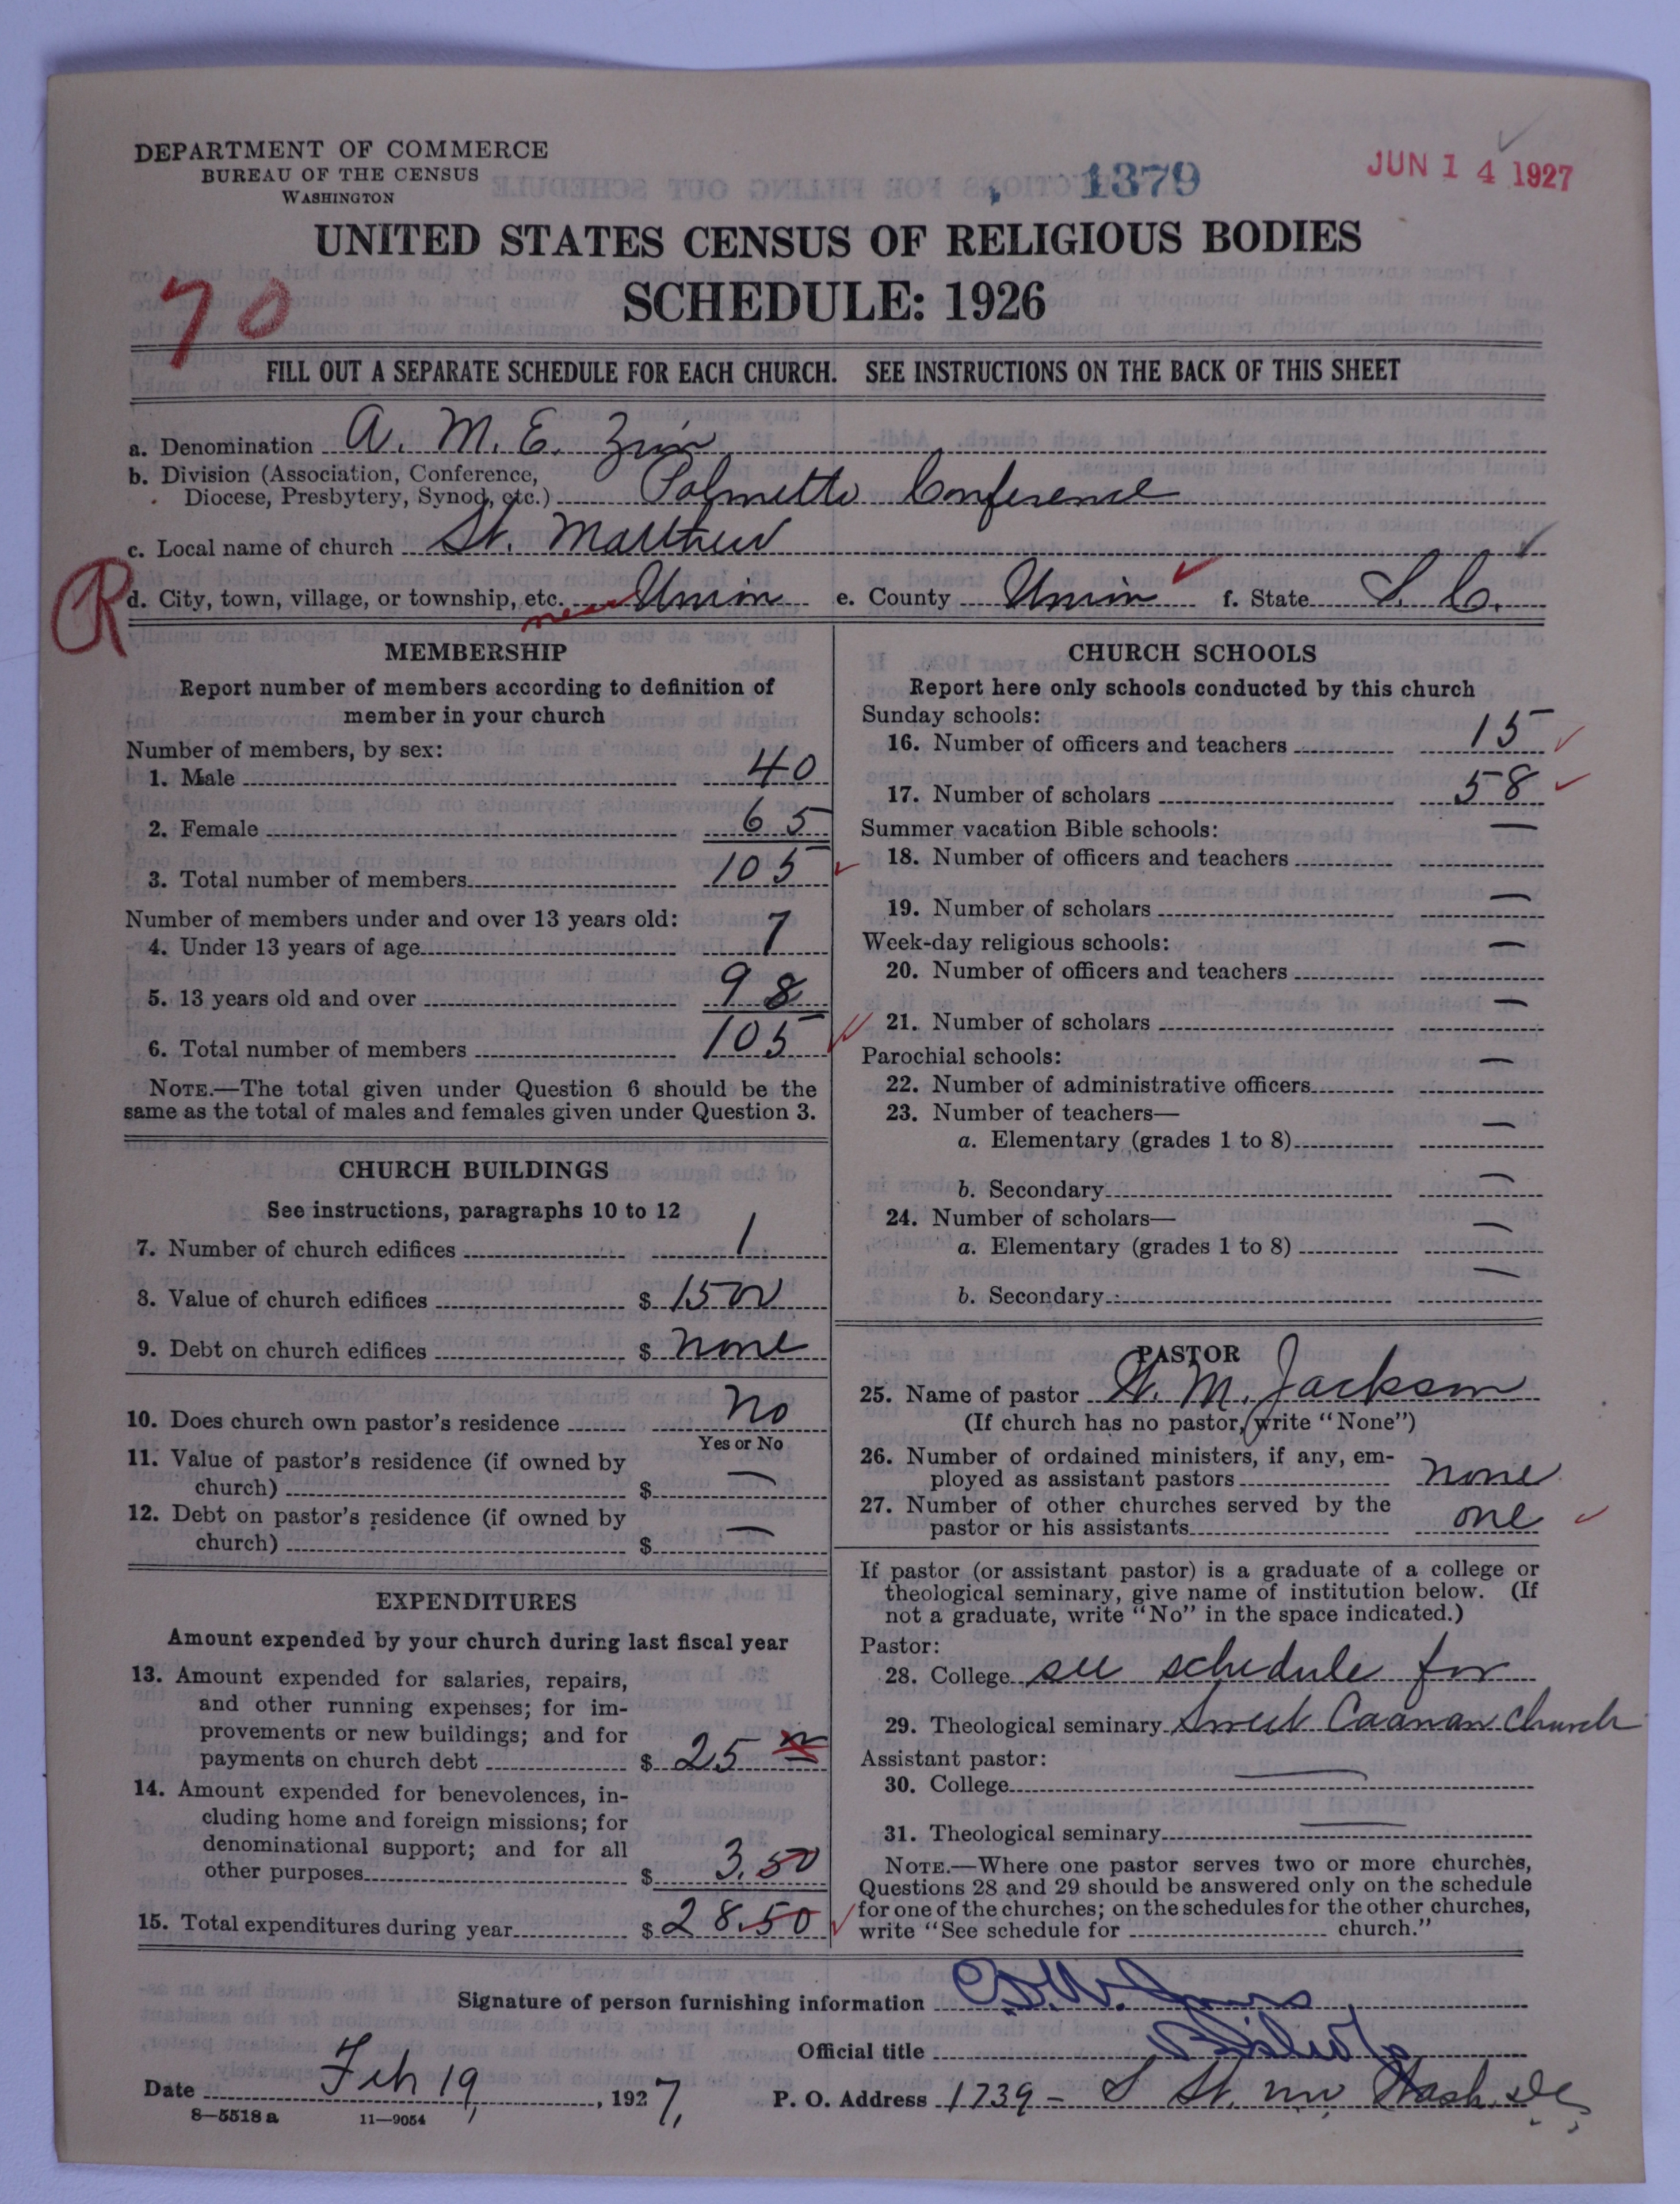 DEPARTMENT OF COMMERCE
BUREAU OF THE CENSUS
WASHINGTON
1379
JUN 14 1927
UNITED STATES CENSUS OF RELIGIOUS BODIES
SCHEDULE: 1926
70
FILL OUT A SEPARATE SCHEDULE FOR EACH CHURCH. SEE INSTRUCTIONS ON THE BACK OF THIS SHEET
a. Denomination A. M. E. Zion
b. Division (Association, Conference,
Diocese, Presbytery, Synod, etc.) Palmetto Conference
c. Local name of church St. Matthew
R
d. City, town, village, or township, etc. near Union e. County Union f. State S. C.
MEMBERSHIP
Report number of members according to definition of
member in your church
Number of members, by sex:
1. Male 40
2. Female 65
3. Total number of members 105
Number of members under and over 13 years old:
4. Under 13 years of age 7
5. 13 years old and over 98
6. Total number of members 105
NOTE.—The total given under Question 6 should be the
same as the total of males and females given under Question 3.
CHURCH BUILDINGS
See instructions, paragraphs 10 to 12
7. Number of church edifices 1
8. Value of church edifices $ 1500
9. Debt on church edifices $ none
10. Does church own pastor's residence No
Yes or No
11. Value of pastor's residence (if owned by
church) $ —
12. Debt on pastor's residence (if owned by
church) $ —
EXPENDITURES
Amount expended by your church during last fiscal year
13. Amount expended for salaries, repairs,
and other running expenses; for im-
provements or new buildings; and for
payments on church debt $ 25 00
14. Amount expended for benevolences, in-
cluding home and foreign missions; for
denominational support; and for all
other purposes $ 3.50
15. Total expenditures during year $ 28.50
CHURCH SCHOOLS
Report here only schools conducted by this church
Sunday schools:
16. Number of officers and teachers 15
17. Number of scholars 58
Summer vacation Bible schools:
18. Number of officers and teachers —
19. Number of scholars —
Week-day religious schools:
20. Number of officers and teachers —
21. Number of scholars —
Parochial schools:
22. Number of administrative officers —
23. Number of teachers—
a. Elementary (grades 1 to 8) —
b. Secondary —
24. Number of scholars—
a. Elementary (grades 1 to 8) —
b. Secondary —
PASTOR
25. Name of pastor M. Jackson
(If church has no pastor, write "None")
26. Number of ordained ministers, if any, em-
ployed as assistant pastors none
27. Number of other churches served by the
pastor or his assistants one
If pastor (or assistant pastor) is a graduate of a college or
theological seminary, give name of institution below. (If
not a graduate, write "No" in the space indicated.)
Pastor:
28. College see schedule for
29. Theological seminary Sweet Caanan Church
Assistant pastor:
30. College —
31. Theological seminary —
NOTE.—Where one pastor serves two or more churches,
Questions 28 and 29 should be answered only on the schedule
for one of the churches; on the schedules for the other churches,
write "See schedule for church."
Signature of person furnishing information
Official title
Date Feb 19, 1927, P. O. Address 1739 - S St. nw, Wash. DC,
8—5518a 11—9054